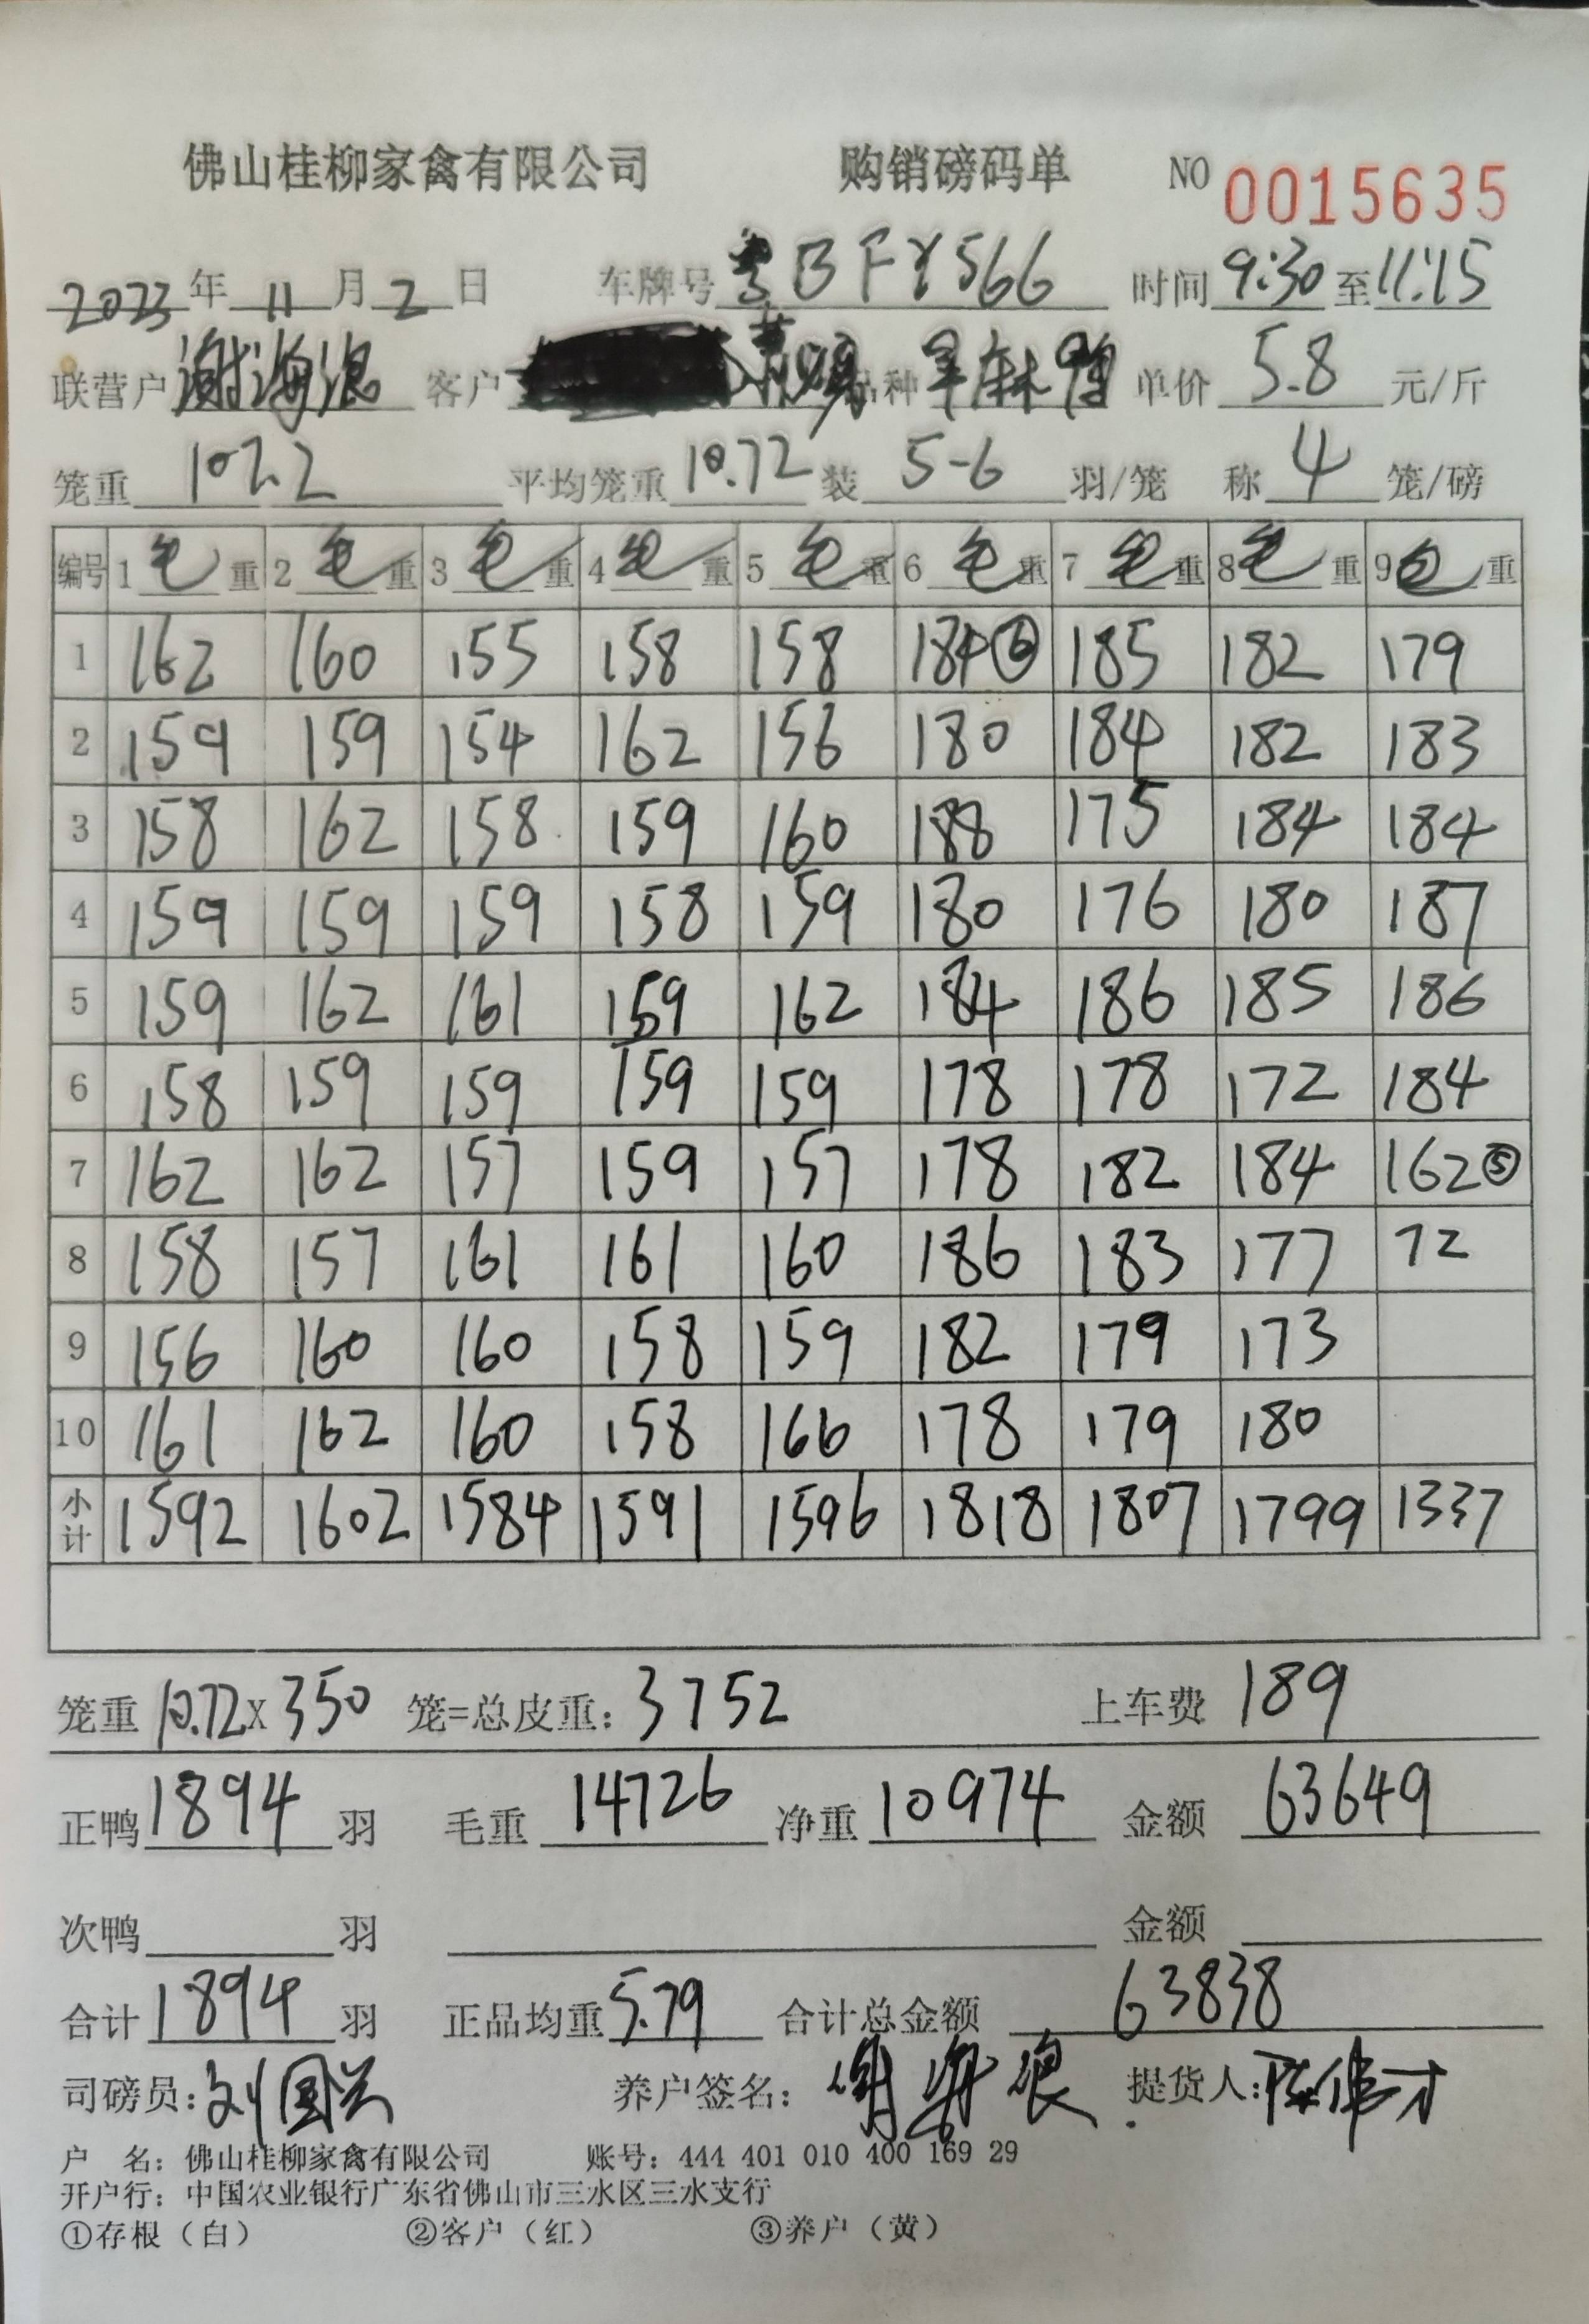 佛山桂柳家禽有限公司 购销磅码单 NO 0015635
2023年 11月 2日 车牌号 粤BFY566 时间 9:30 至 11:15
联营户 谢海浪 客户 品种 单价 5.8 元/斤
笼重 107.2 平均笼重 10.72 装 5-6 羽/笼 称 4 笼/磅
编号 1 毛重 2 毛重 3 毛重 4 毛重 5 毛重 6 毛重 7 毛重 8 毛重 9 毛重
1 162 160 155 158 158 184⑥ 185 182 179
2 159 159 154 162 156 180 184 182 183
3 158 162 158 159 160 188 175 184 184
4 159 159 159 158 159 180 176 180 187
5 159 162 161 159 162 184 186 185 186
6 158 159 159 159 159 178 178 172 184
7 162 162 157 159 157 178 182 184 162⑤
8 158 157 161 161 160 186 183 177 72
9 156 160 160 158 159 182 179 173
10 161 162 160 158 166 178 179 180
小计 1592 1602 1584 1591 1596 1818 1807 1799 1337
笼重 10.72 X 350 笼=总皮重: 3752 上车费 189
正鸭 1894 羽 毛重 14726 净重 10974 金额 63649
次鸭 羽 金额
合计 1894 羽 正品均重 5.79 合计总金额 63838
司磅员: 刘国兴 养户签名: 谢海浪 提货人: 陈伟才
户 名: 佛山桂柳家禽有限公司 账号: 444 401 010 400 169 29
开户行: 中国农业银行广东省佛山市三水区三水支行
①存根（白） ②客户（红） ③养户（黄）